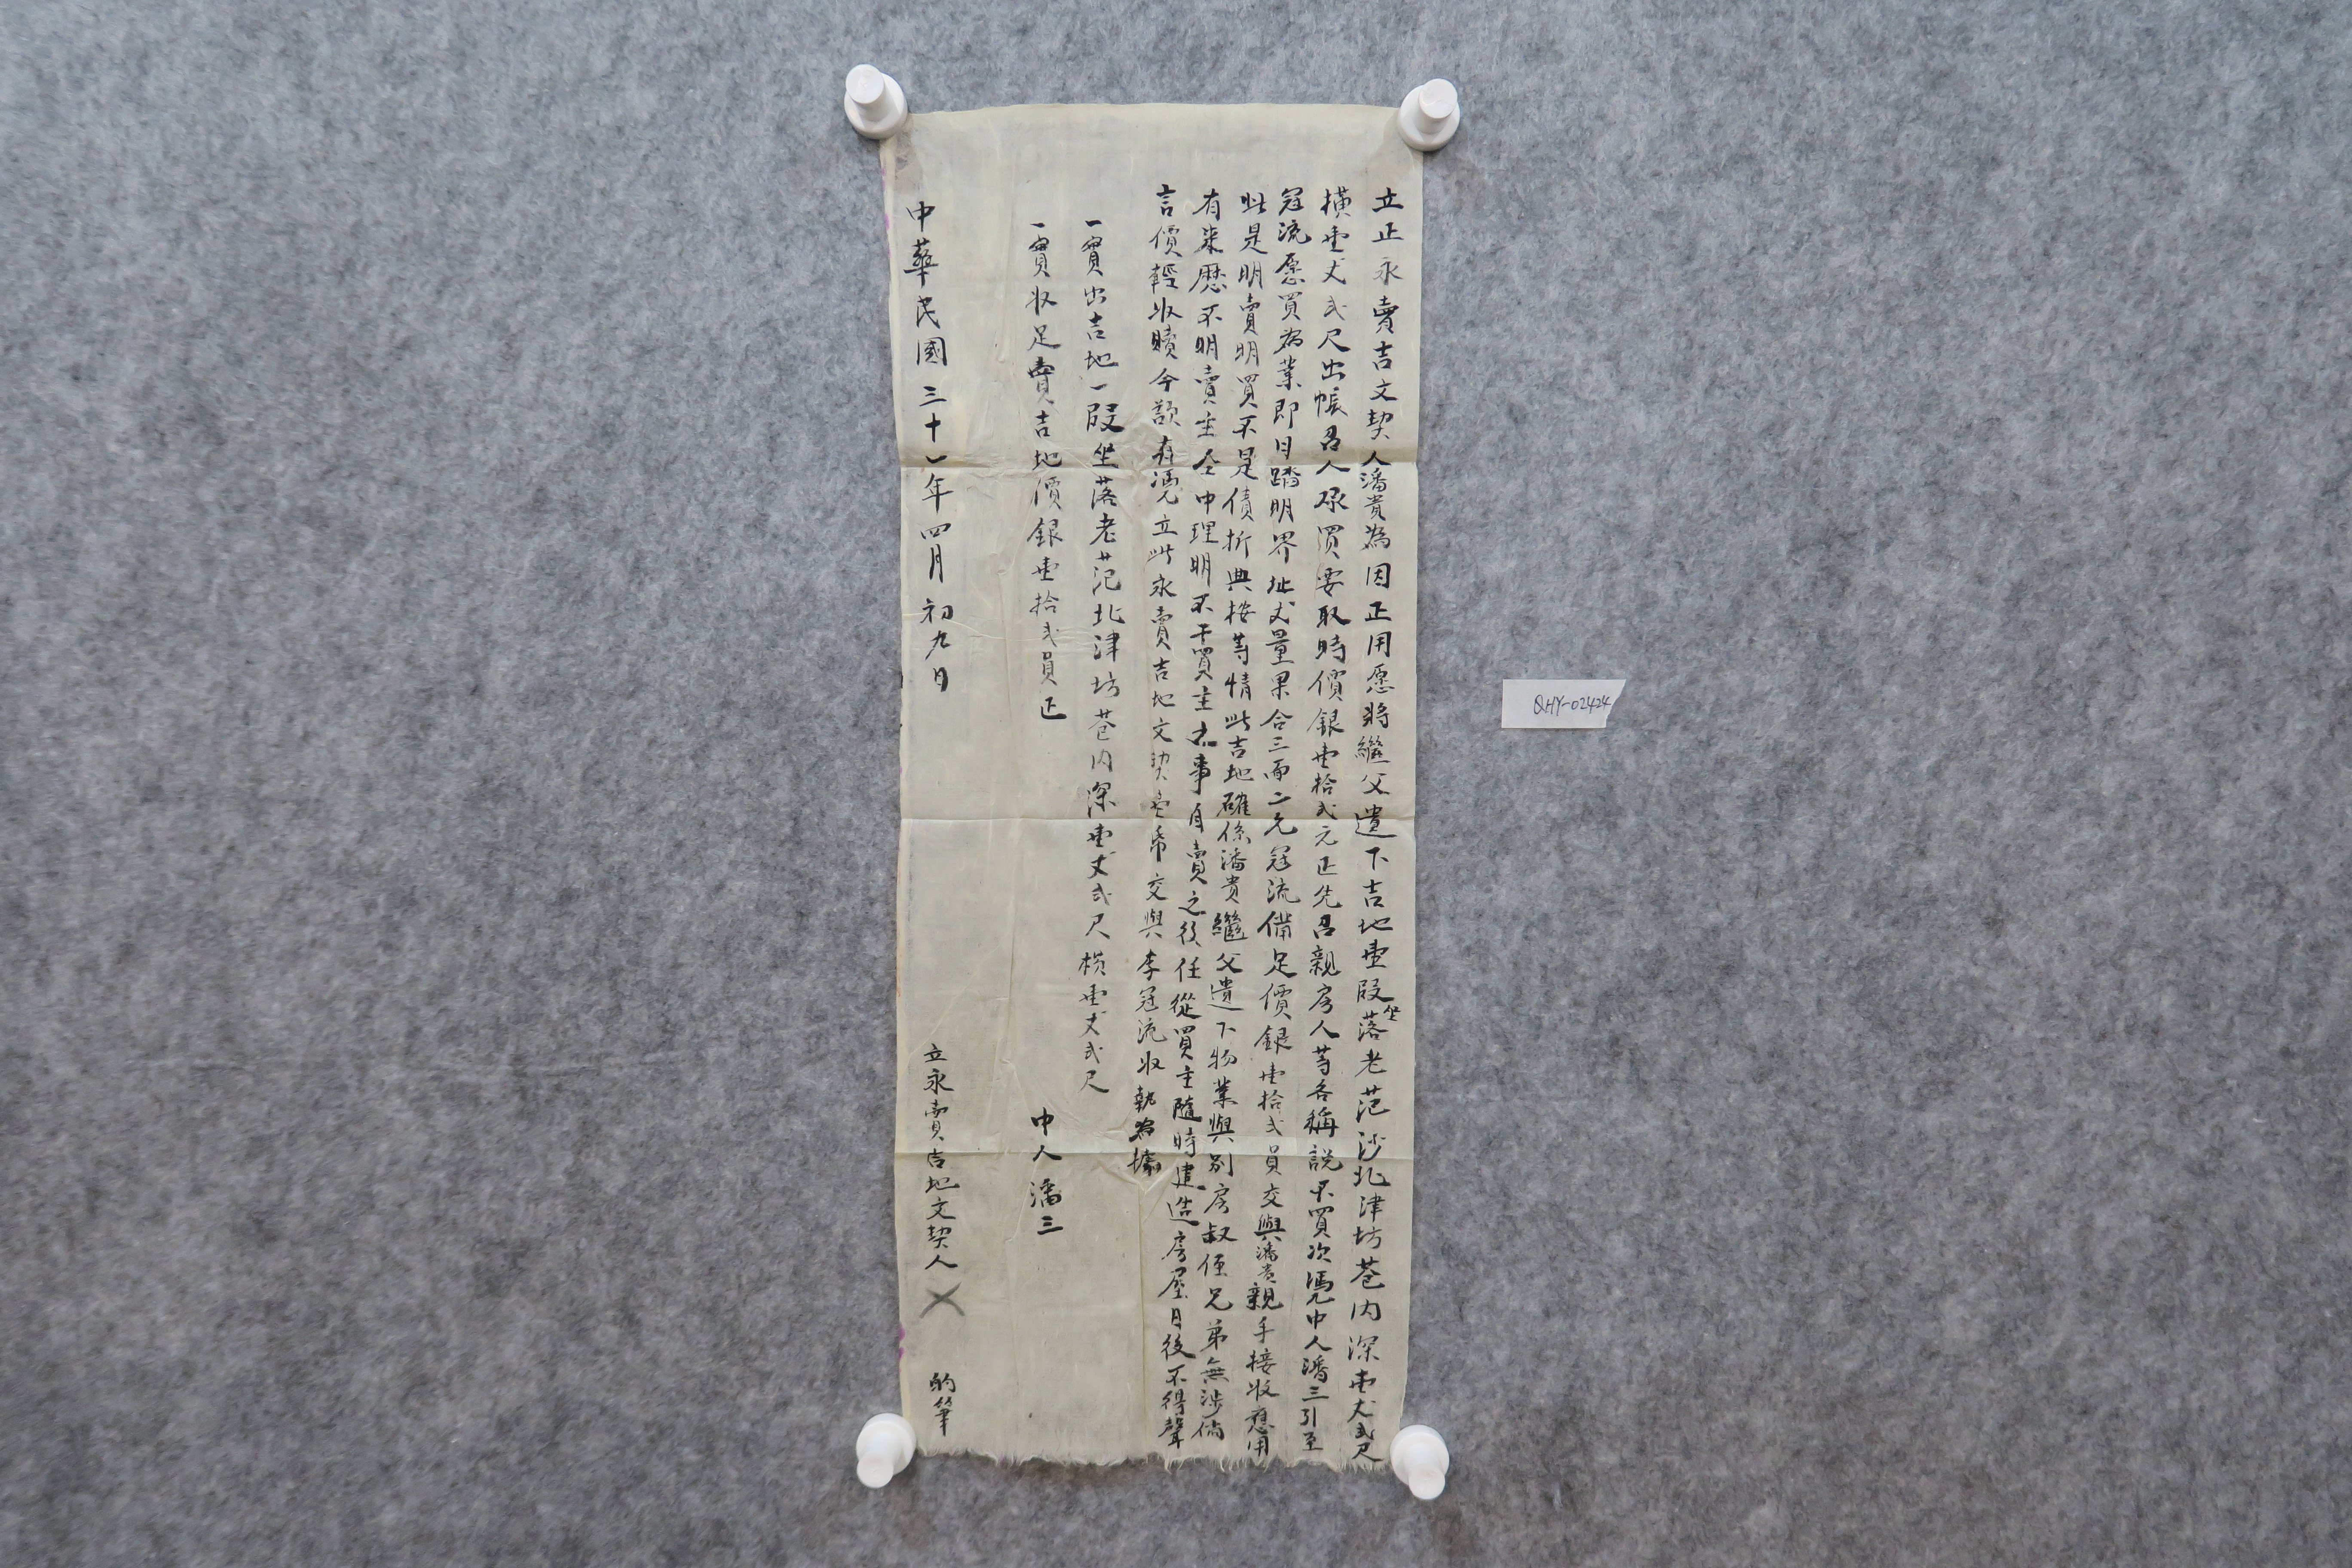 立正永賣吉文契人潘貴為因正用愿將繼父遺下吉地壹段坐落老范沙北津坊巷内深壹丈弍尺
橫壹丈弍尺出帳召人承買要取時價銀壹拾弍元正先召親房人等各稱說不買次憑中人潘三引至
冠流愿買為業即日踏明界址丈量果合三面二允冠流備足價銀壹拾弍員交與潘貴親手接收應用
此是明賣明買不是債折典按等情此吉地確係潘貴繼父遺下物業與别房叔侄兄弟無涉倘
有來歷不明賣主仝中理明不干買主之事自賣之後任從買主隨時建造房屋日後不得聲
言價輕收贖今欲有憑立此永賣吉地文契壹帋交與李冠流收執為據
一實出吉地一段坐落老范北津坊巷内深壹丈弍尺橫壹丈弍尺
一實收足賣吉地價銀壹拾弍員正
中人潘三
中華民國三十一年四月初九日
立永賣吉地文契人
的筆
QHY-02424